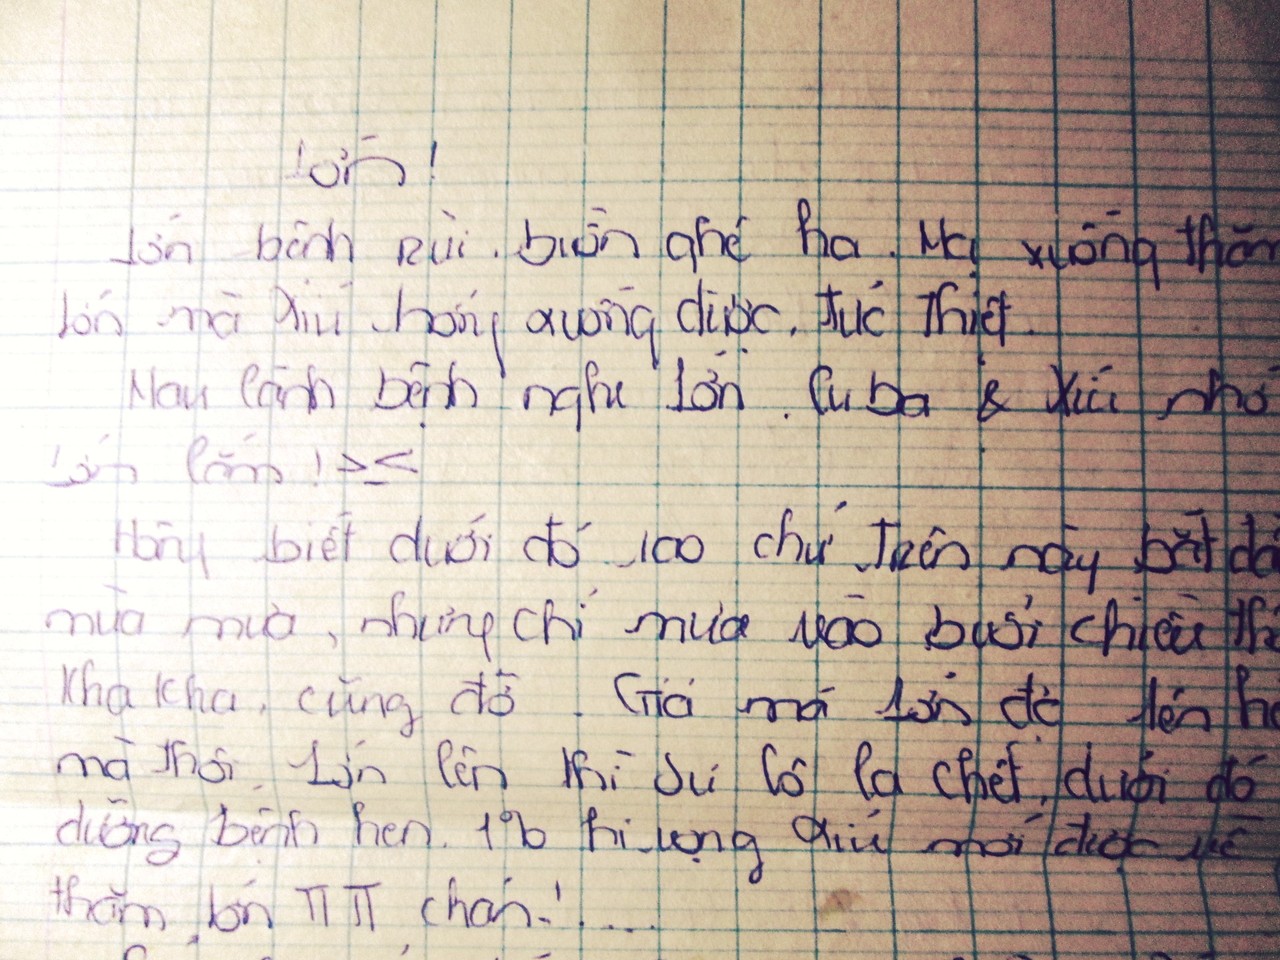 Lớn!
Lớn bệnh rùi. buồn ghê ha. Mẹ xuống thăm
lớn mà Xíu hổng xuống được. Tức thiệt.
Mau lành bệnh nghe lớn. Cu ba & Xíu nhớ
lớn lắm! >_<
Hổng biết dưới đó sao chứ trên này bắt đầ
mùa mưa, nhưng chỉ mưa vào buổi chiều th
Kha kha, cũng đỡ. Giá mà lớn đc lên h
mà thôi. Lớn lên thì Sư Cô la chết, dưới đó
dưỡng bệnh hen. 1% hi vọng Xíu mới được về
thăm lớn TT TT chán!....